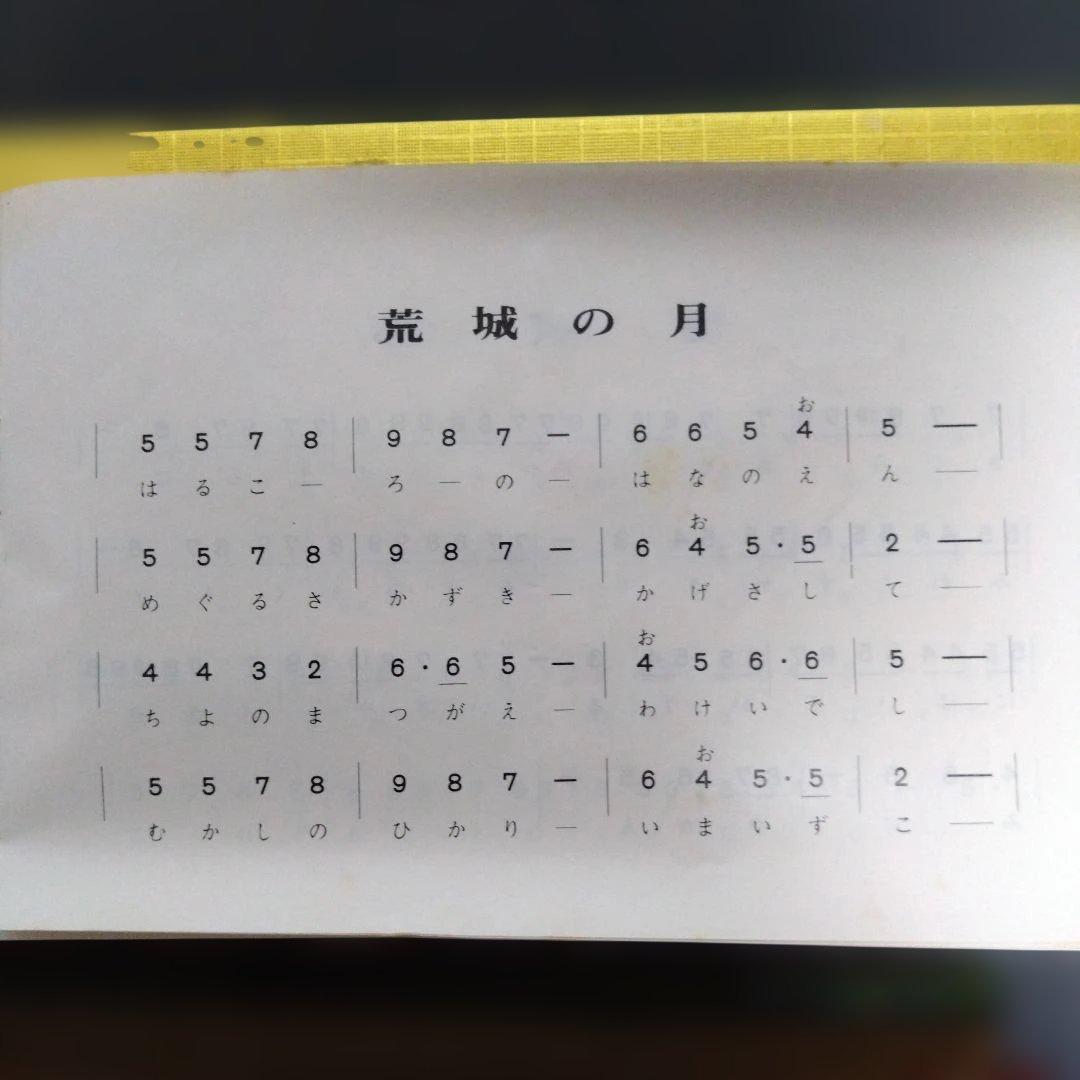 荒城の月
お
5 5 7 8 9 8 7 — 6 6 5 4 5 —
はるこ—ろ—の—はなのえん—
お
5 5 7 8 9 8 7 — 6 4 5・5 2 —
めぐるさかずき—かげさして—
お
4 4 3 2 6・6 5 — 4 5 6・6 5 —
ちよのまつがえ—わけいでし—
お
5 5 7 8 9 8 7 — 6 4 5・5 2 —
むかしのひかり—いまいずこ—